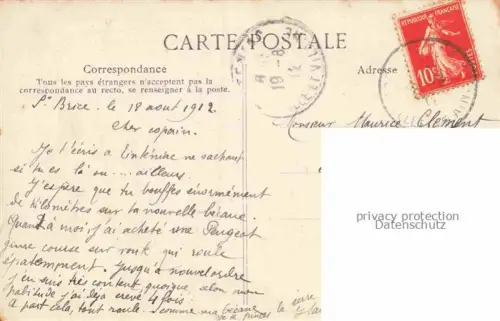 CARTE POSTALE
RÉPUBLIQUE FRANÇAISE
10
POSTES
19-8
12
Correspondance
Adresse
Tous les pays étrangers n'acceptent pas la
correspondance au recto, se renseigner à la poste.
St Brice. le 18 aout 1912
Monsieur Maurice Clément
Cher copain.
Je t'écris à ne sachant
si tu es là ou .... ailleurs.
J'espère que tu bouffes énormément
de kilomètres sur ta nouvelle bécane.
Quant à moi j'ai acheté une Peugeot
course sur route qui roule
épatemment. Jusqu'à nouvel ordre
j'en suis très content quoique, selon mon
habitude j'ai déjà crevé 4 fois.
à part cela, tout roule. Somme ma bécane
privacy protection
Datenschutz